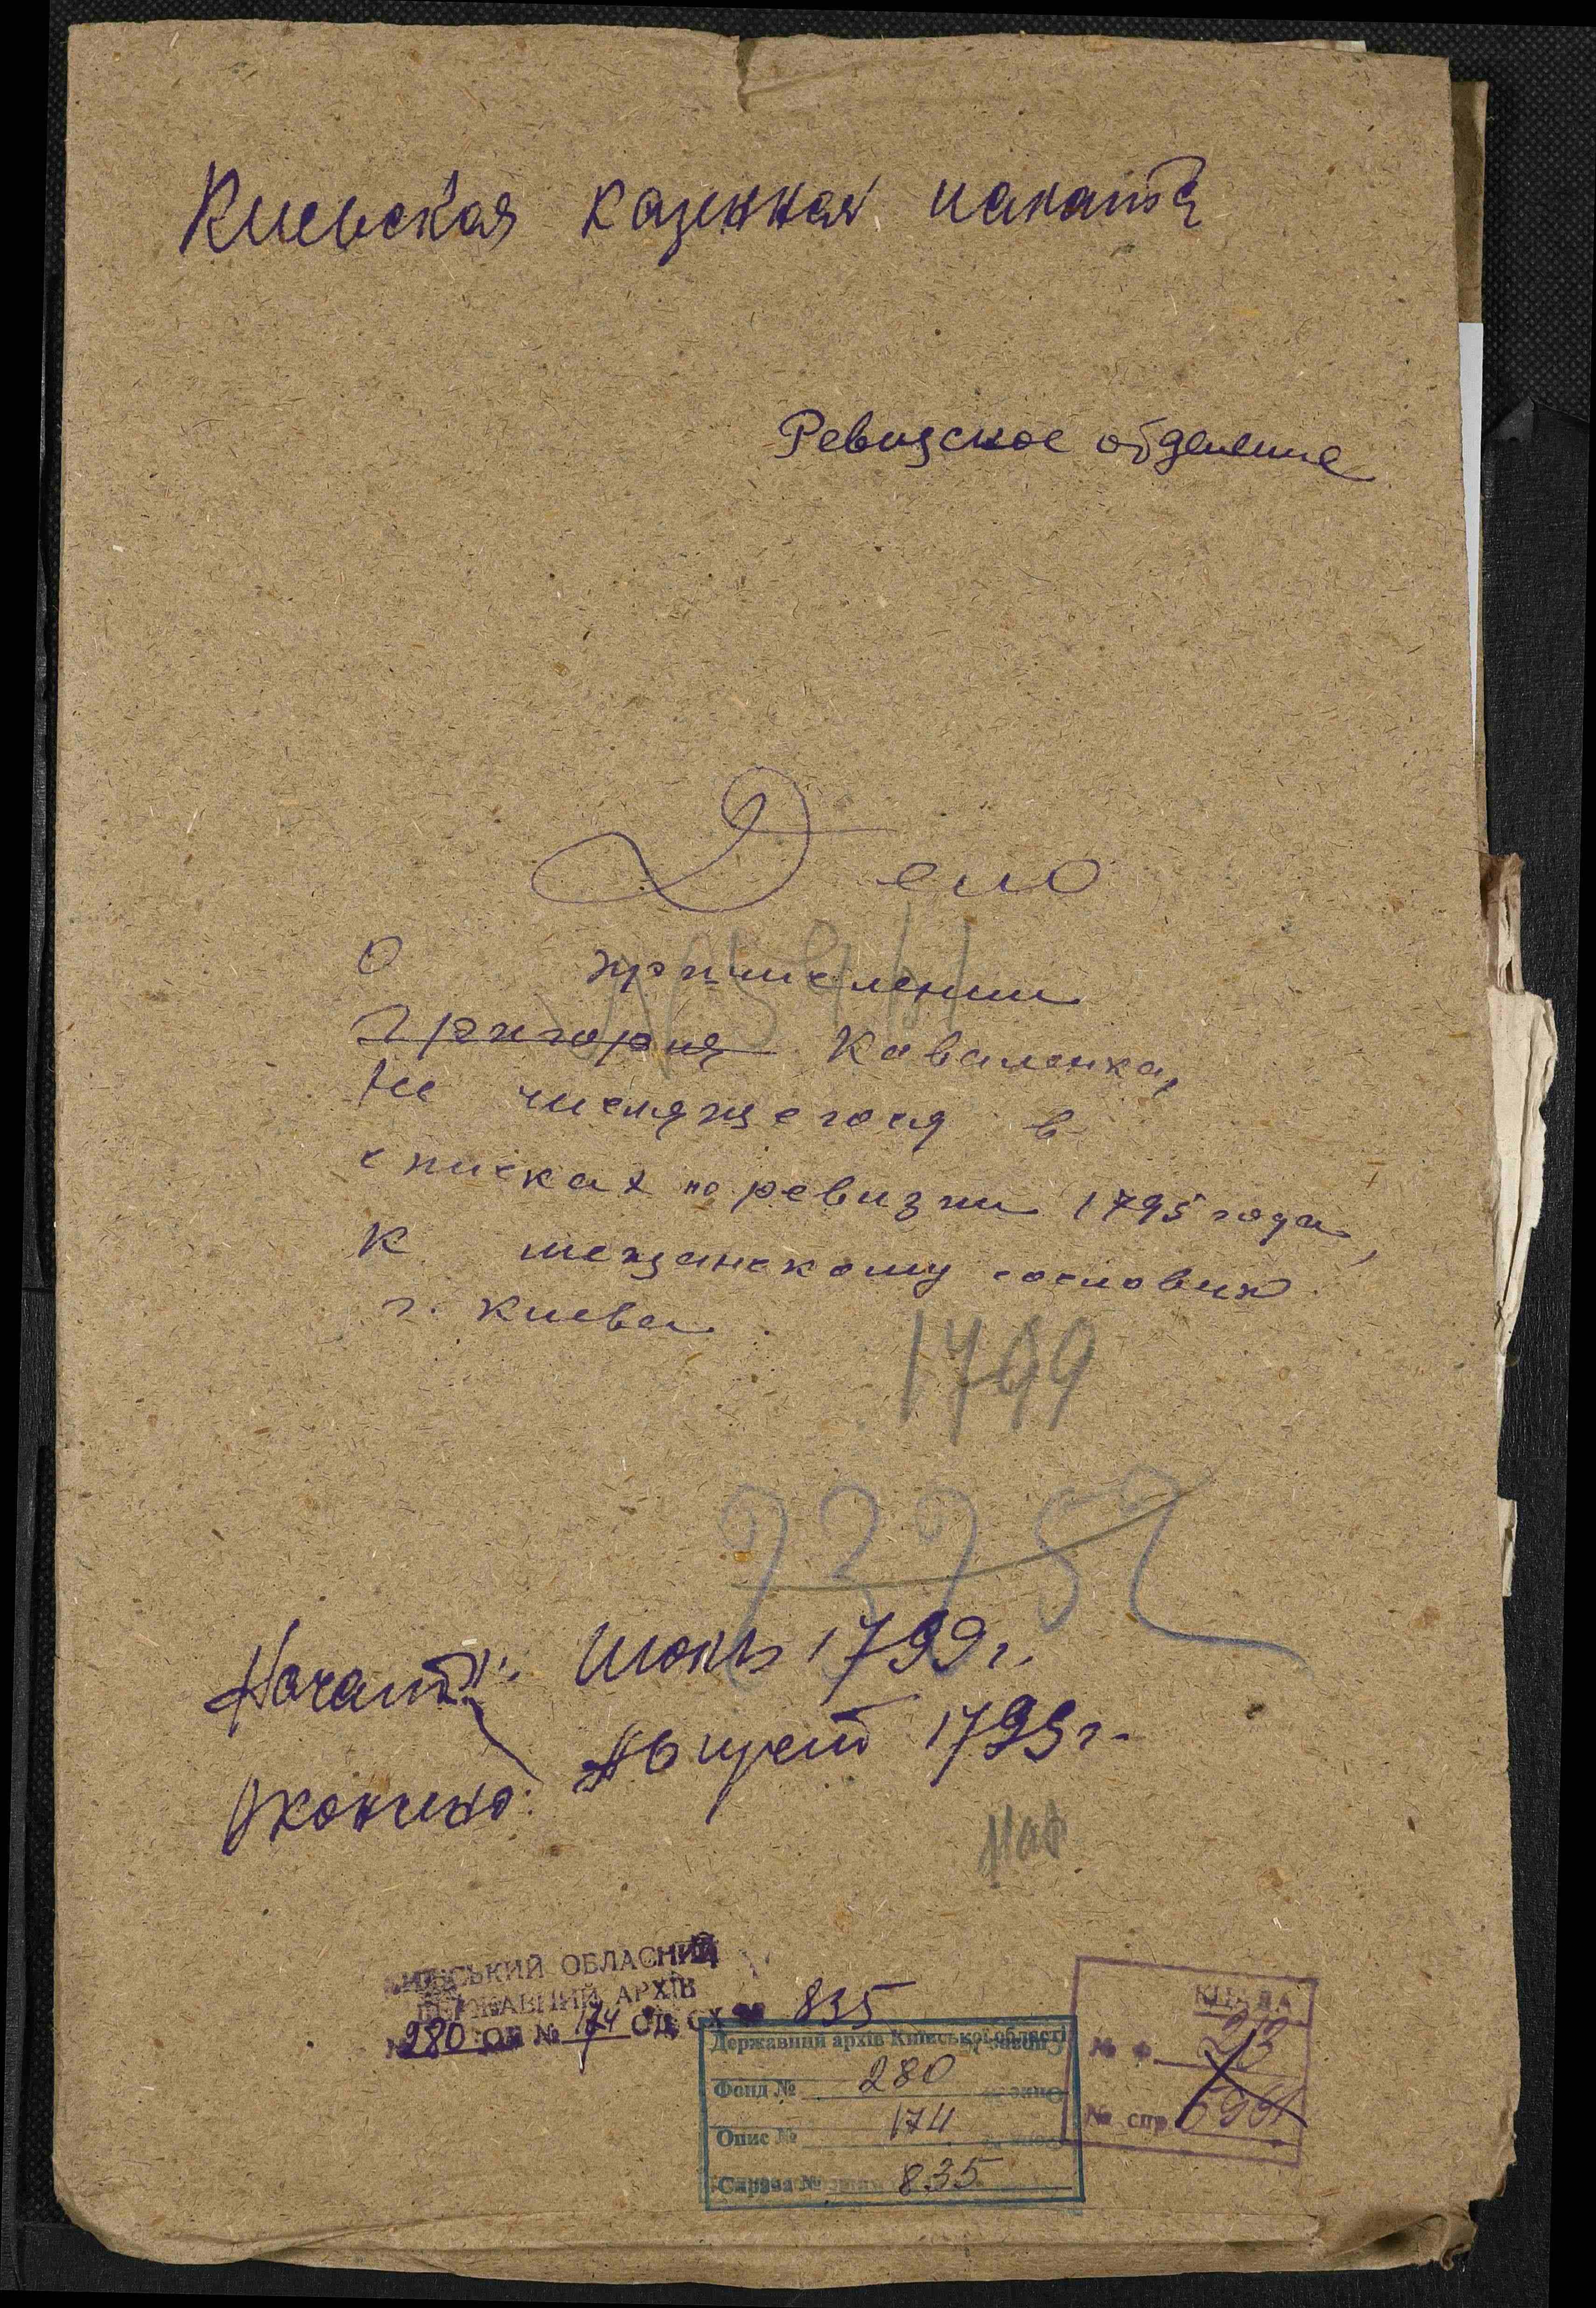 Киевская казенная палата
Ревизское отделение
Дело
О причислении
Григория Коваленка,
не числящегося в
списках по ревизии 1795 года,
к мещанскому сословию
г. Киева
1799
Начато: Июнь 1799 г.
Окончено: Август 1799 г.
КИЇВСЬКИЙ ОБЛАСНИЙ
ДЕРЖАВНИЙ АРХІВ
280 ОП № 174 ОД. ЗБ. 835
Державний архів Київської області
Фонд № 280
Опис № 174
Справа № 835
№ ф. 23
№ спр.